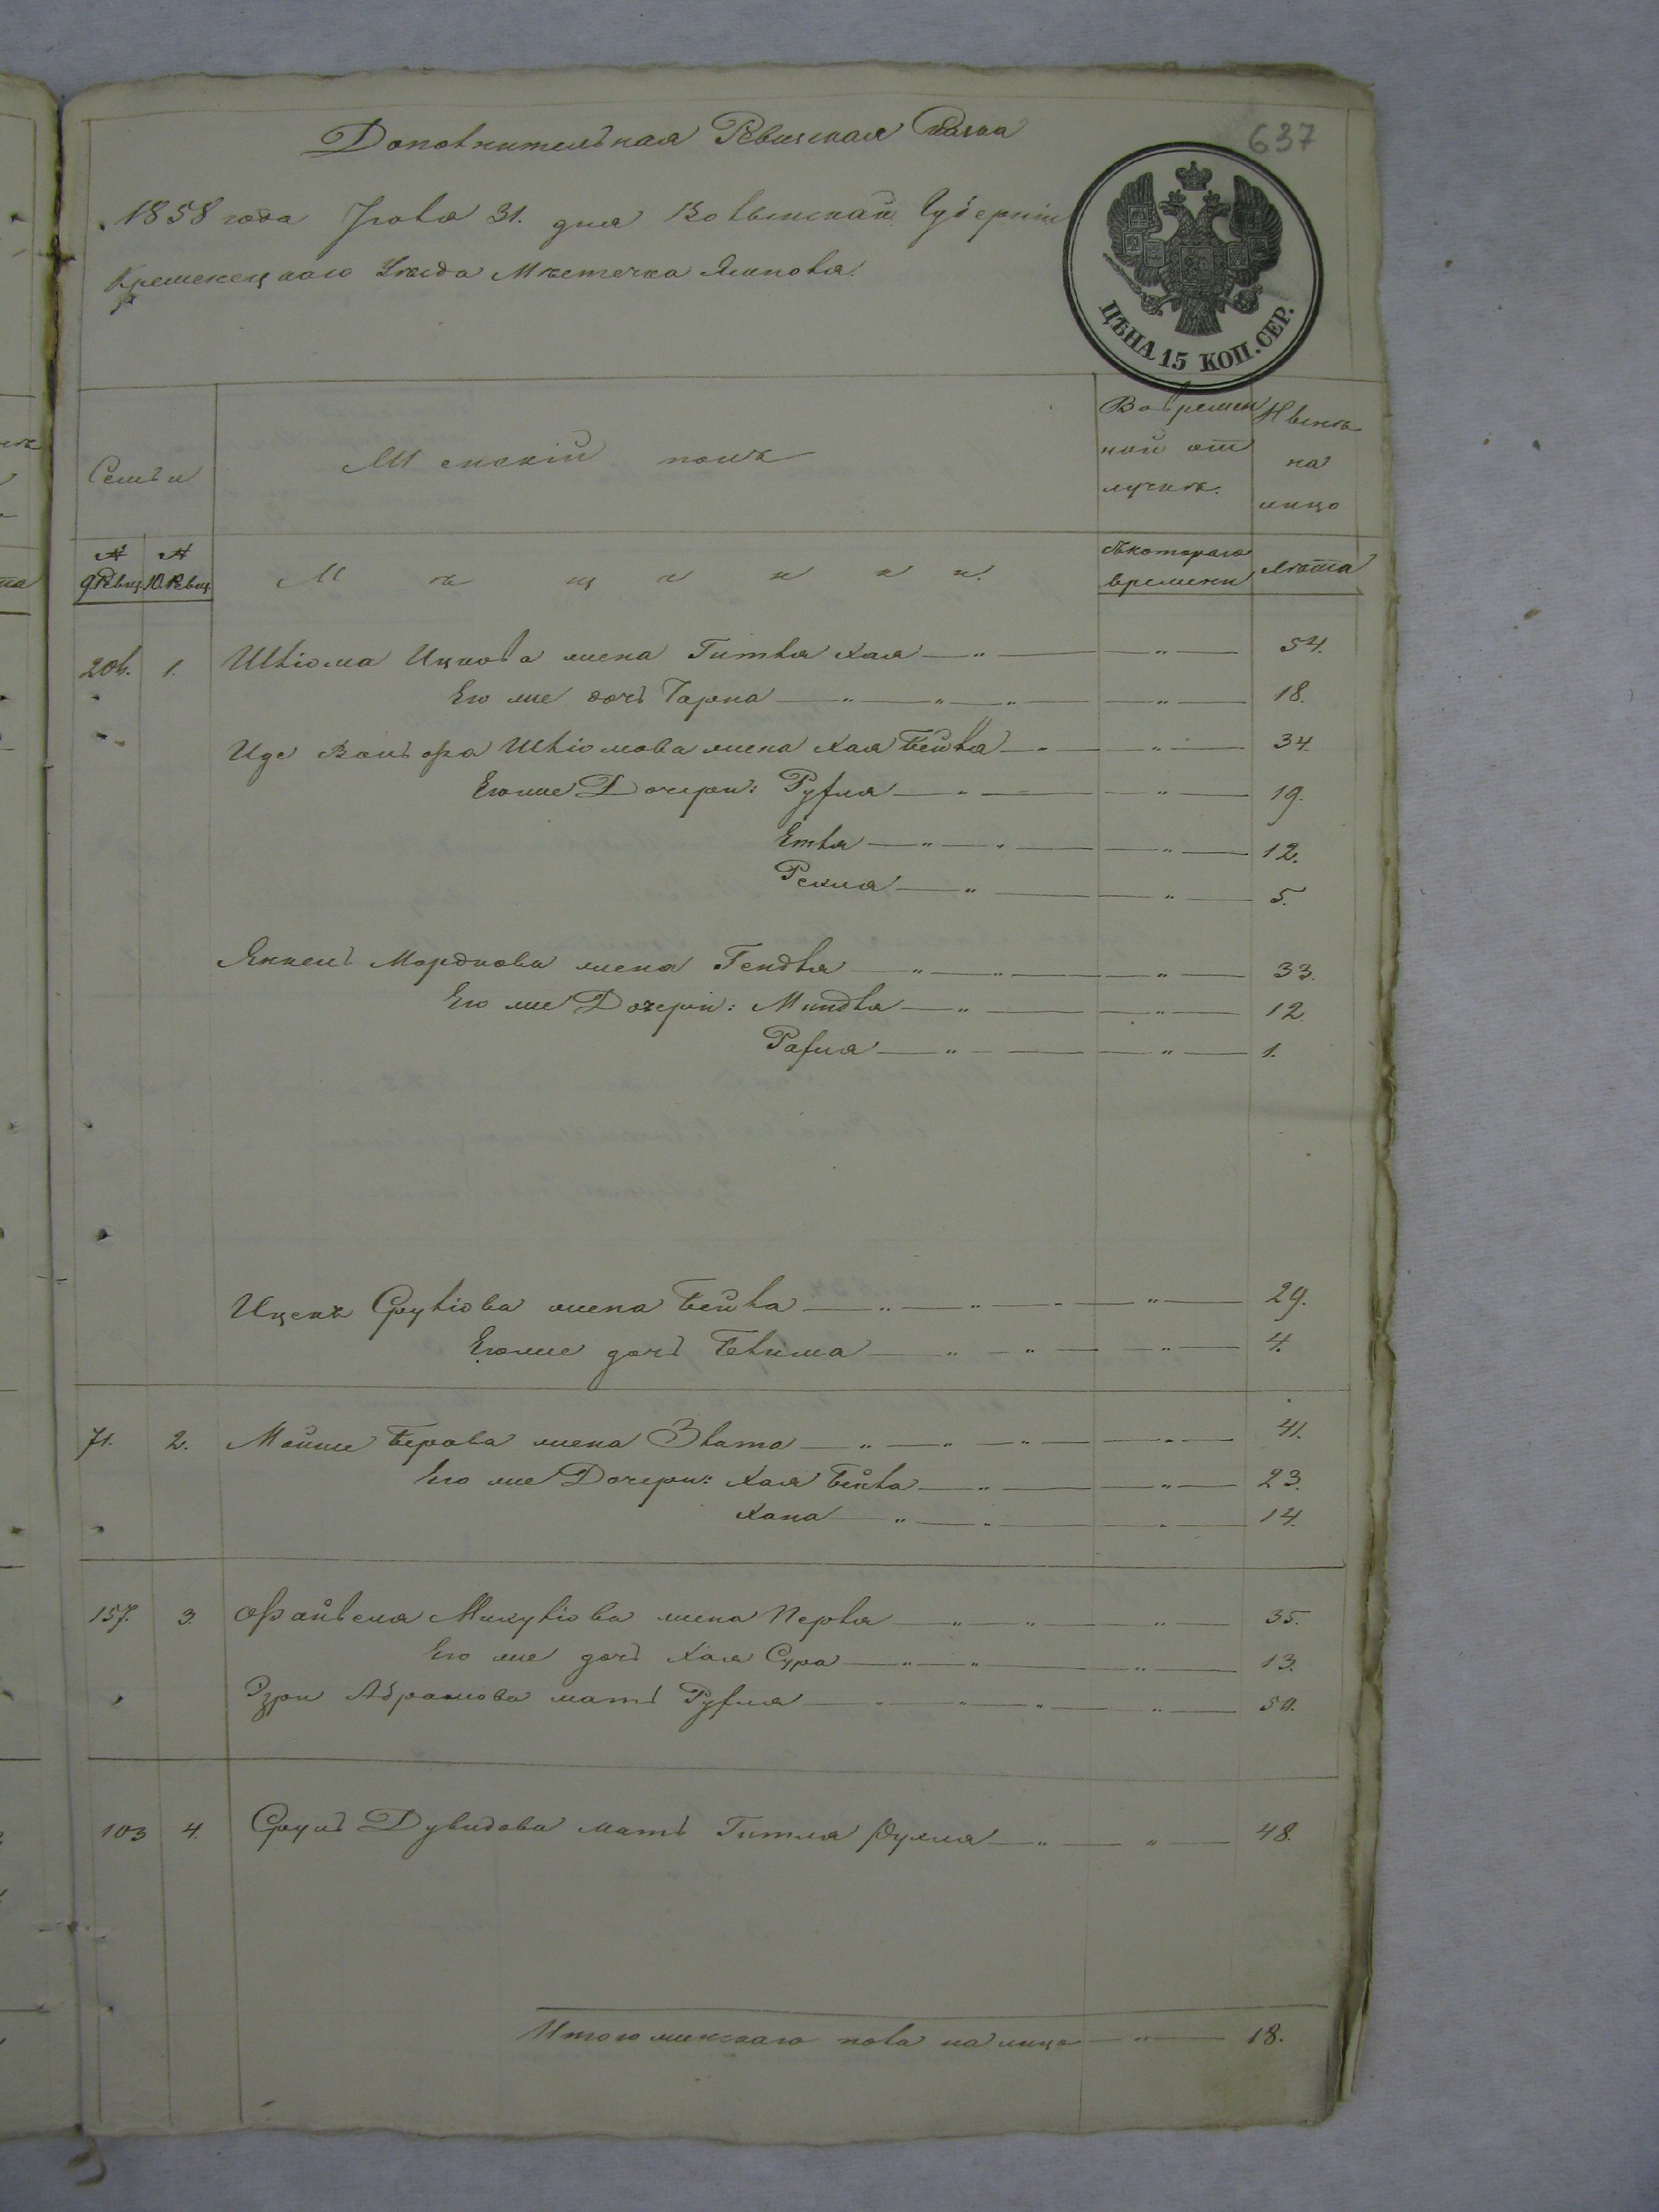 Дополнительная Ревизская Сказка
637
1858 года Июля 31. дня Волынской Губерніи
Кременецкаго Уѣзда Мѣстечка Ямполя.
ЦѢНА 15 КОП. СЕР.
Семьи
Женскій полъ
Во времен
ной от
лучкѣ.
Нынѣ
на
лицо
№ 9 Ревиз
№ 10. Ревиз
Мѣщанки.
Съ котораго
времени
Лѣта
206. 1. Шліома Ицкова жена Гитля Хая — " — " — 54.
Его же дочь — " — " — " — " — 18.
Шліомова жена Хая Бейла — " — " — 34.
Его же Дочери: Рухля — " — " — 19.
Етля — " — " — " — 12.
— " — " — 5.
Янкель Мордкова жена Гендля — " — " — " — 33.
Его же Дочери: Миндля — " — " — 12.
Рахля — " — " — 1.
Ицекъ Срулiова жена Бейла — " — " — " — " — 29.
Его же дочь Блима — " — " — " — 4.
71. 2. Мойше Берова жена Злата — " — " — " — " — 41.
Его же Дочери: Хая Бейла — " — " — 23.
Хана — " — " — " — 14.
157. 3. Файвеля жена Перля — " — " — " — 35.
Его же дочь Хая Сура — " — " — " — 13.
Абрамова мать Рухля — " — " — " — " — 50.
103 4. Сруль Дувидова мать Гитля — " — " — 48.
Итого женскаго пола на лицо — " — 18.